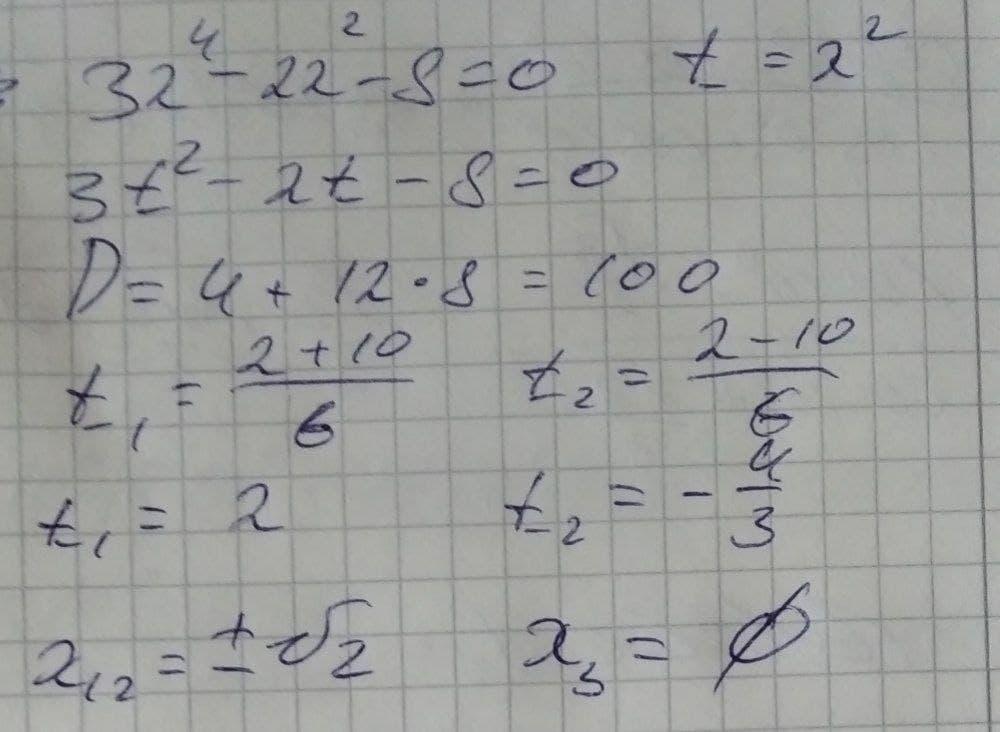 3x⁴ - 2x² - 8 = 0    t = x²
3t² - 2t - 8 = 0
D = 4 + 12 · 8 = 100
t₁ = (2 + 10)/6    t₂ = (2 - 10)/6
t₁ = 2    t₂ = -4/3
x₁₂ = ±√2    x₃ = ∅